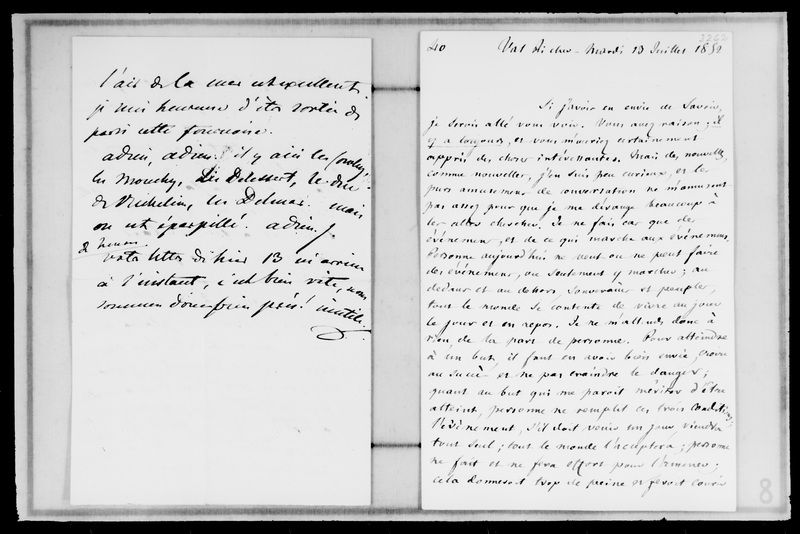 l'air de la mer est excellent,
je suis heureuse d'être sortie de
paris cette fournaise.
adieu, adieu. il y a ici les
les Mouchy, les Delessert, le duc
de Richelieu, les Delmar. mais
on est éparpillé. adieu.
2 heures
votre lettre de hier 13 m'arrive
à l'instant, c'est bien vite, nous
sommes donc bien près! inutile.
40 Val Richer - Mardi 13 Juillet 1852
3262
Si j'avois eu envie de savoir,
je serois allé vous voir. Vous avez raison; il
y a toujours, et vous m'auriez certainement
appris des choses intéressantes. Mais des nouvelles,
comme nouvelles, j'en suis peu curieux, et le
pur amusement de conversation ne m'amusent
pas assez pour que je me dérange beaucoup à
les aller chercher. Je ne fais cas que des
événemens, et de ce qui marche aux événemens.
Personne aujourd'hui ne veut ou ne peut faire
des événemens, ou seulement y marcher; au
dedans et au dehors, souverains et peuples,
tout le monde se contente de vivre au jour
le jour et en repos. Je ne m'attends donc à
rien de la part de personne. Pour atteindre
à un but, il faut en avoir bien envie, croire
au succès et ne pas craindre le danger;
quant au but qui me paroit mériter d'être
atteint, personne ne remplit ces trois conditions;
l'événement, s'il doit venir un jour, viendra
tout seul; tout le monde l'acceptera; personne
ne fait et ne fera effort pour l'amener;
cela donneroit trop de peine et feroit courir
8